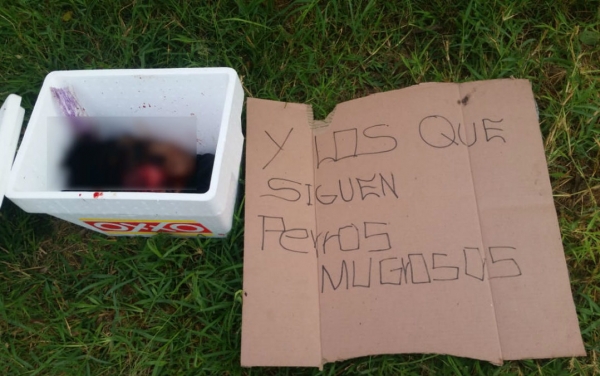 Y LOS QUE
SIGUEN
Perros
MUGROSOS
OXXO